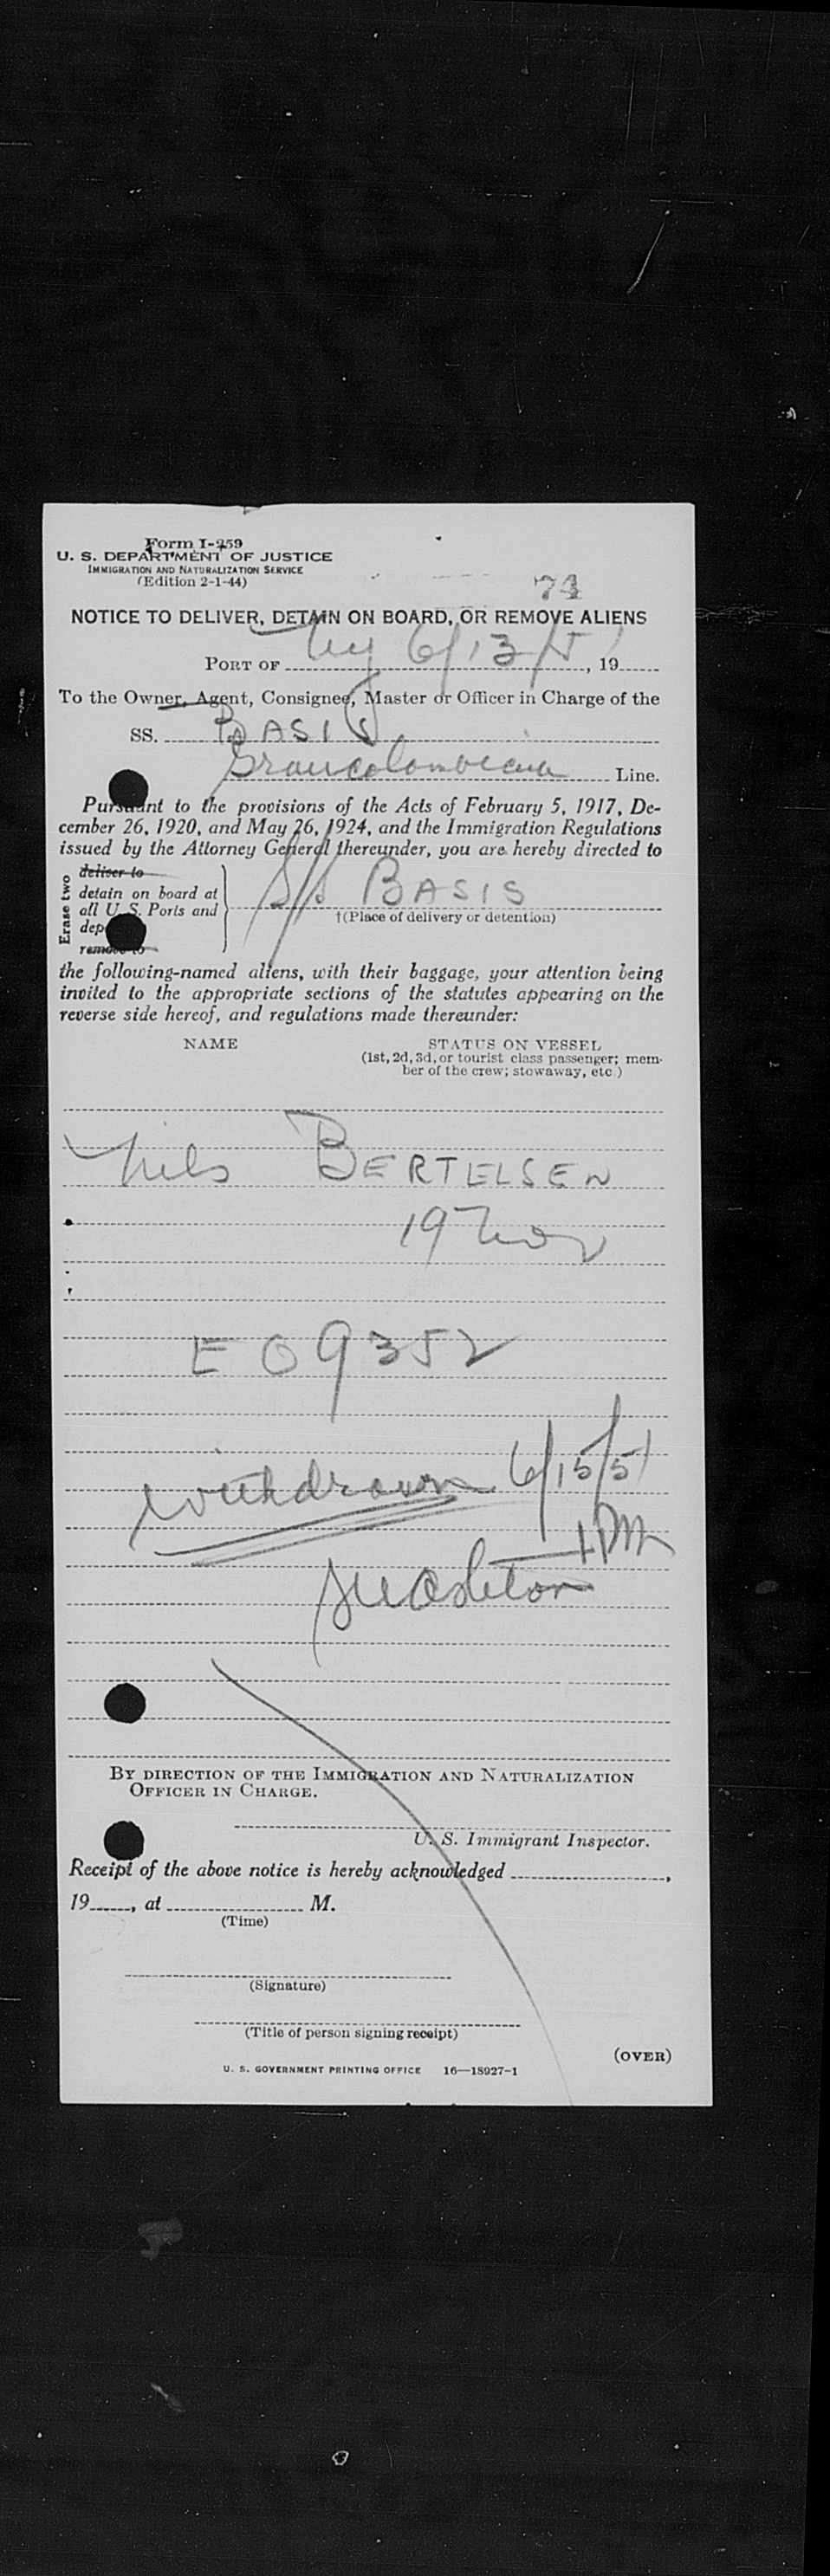 Form I-259
U. S. DEPARTMENT OF JUSTICE
IMMIGRATION AND NATURALIZATION SERVICE
(Edition 2-1-44)
74
NOTICE TO DELIVER, DETAIN ON BOARD, OR REMOVE ALIENS
PORT OF Ny 6/13/51, 19
To the Owner, Agent, Consignee, Master or Officer in Charge of the
SS. BASIS
Grancolombiana Line.
Pursuant to the provisions of the Acts of February 5, 1917, De-
cember 26, 1920, and May 26, 1924, and the Immigration Regulations
issued by the Attorney General thereunder, you are hereby directed to
Erase two
deliver to
detain on board at
all U. S. Ports and
dep
remove to
S/S BASIS
†(Place of delivery or detention)
the following-named aliens, with their baggage, your attention being
invited to the appropriate sections of the statutes appearing on the
reverse side hereof, and regulations made thereunder:
NAME STATUS ON VESSEL
(1st, 2d, 3d, or tourist class passenger; mem-
ber of the crew; stowaway, etc.)
Nils BERTELSEN
19 Nor
EO 9352
Withdrawn 6/15/51
1 PM
BY DIRECTION OF THE IMMIGRATION AND NATURALIZATION
OFFICER IN CHARGE.
U. S. Immigrant Inspector.
Receipt of the above notice is hereby acknowledged ,
19 , at M.
(Time)
(Signature)
(Title of person signing receipt)
(OVER)
U. S. GOVERNMENT PRINTING OFFICE 16—18927-1